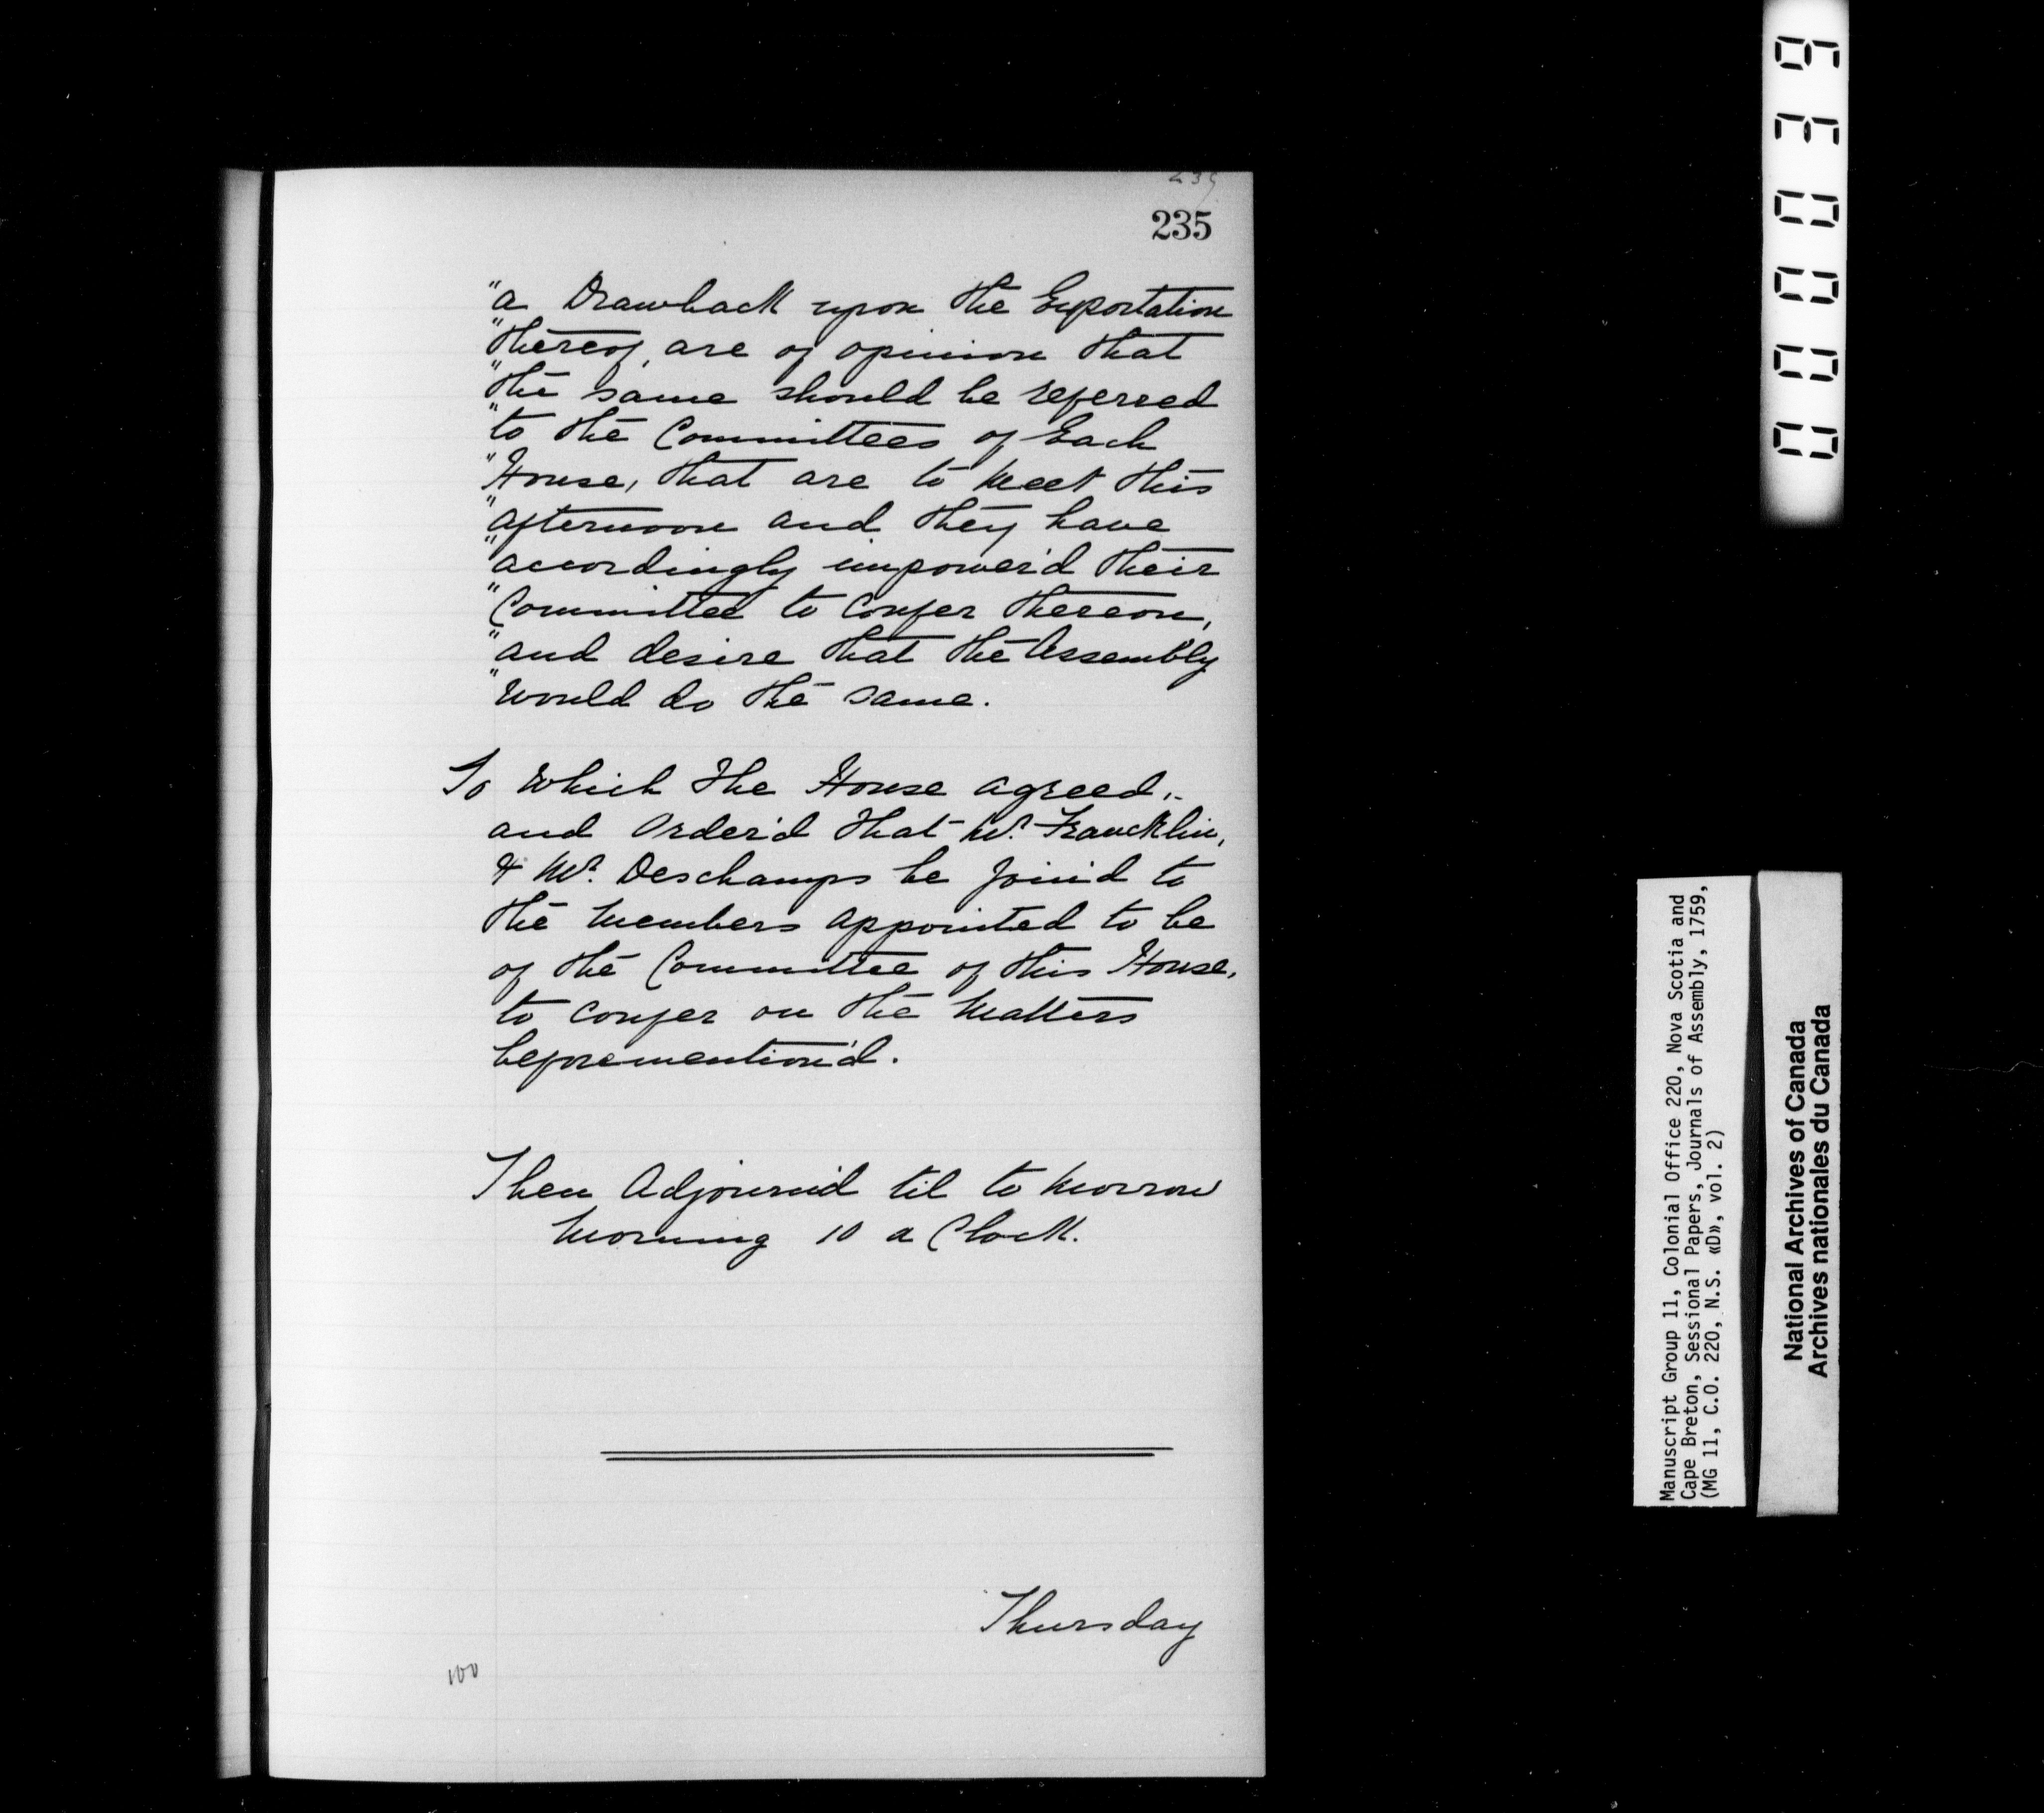 235
235
"a Drawback upon the Exportation
"thereof, are of opinion that
"the same should be referred
"to the Committees of Each
"House, that are to meet this
"afternoon and they have
"accordingly impower'd their
"Committee to confer thereon,
"and desire that the Assembly
"would do the same.
To which the House agreed,
and Order'd that Mr. Francklin,
& Mr. Deschamps be join'd to
the Members appointed to be
of the Committee of this House,
to confer on the Matters
beforemention'd.
Then Adjourn'd til to morrow
Morning 10 a Clock.
Thursday
100
Manuscript Group 11, Colonial Office 220, Nova Scotia and
Cape Breton, Sessional Papers, Journals of Assembly, 1759,
(MG 11, C.O. 220, N.S. «D», vol. 2)
National Archives of Canada
Archives nationales du Canada